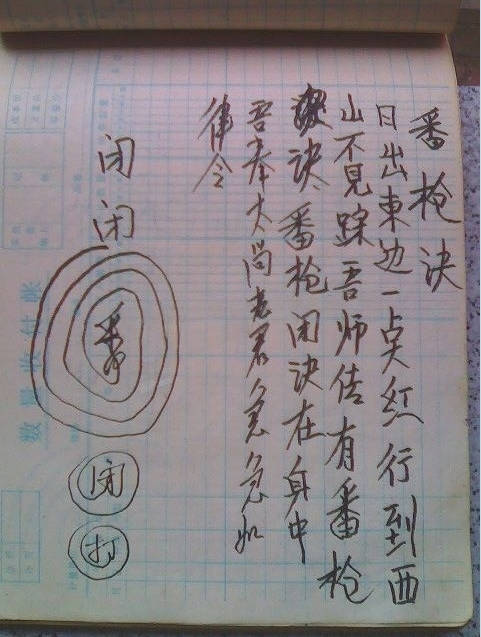 番枪决
日出東边一点红行到西
山不見踪吾师传有番枪
诀番枪闭决在身中
吾奉太尚老君急急如
律令
闭
闭
闭
打
数量收付帐